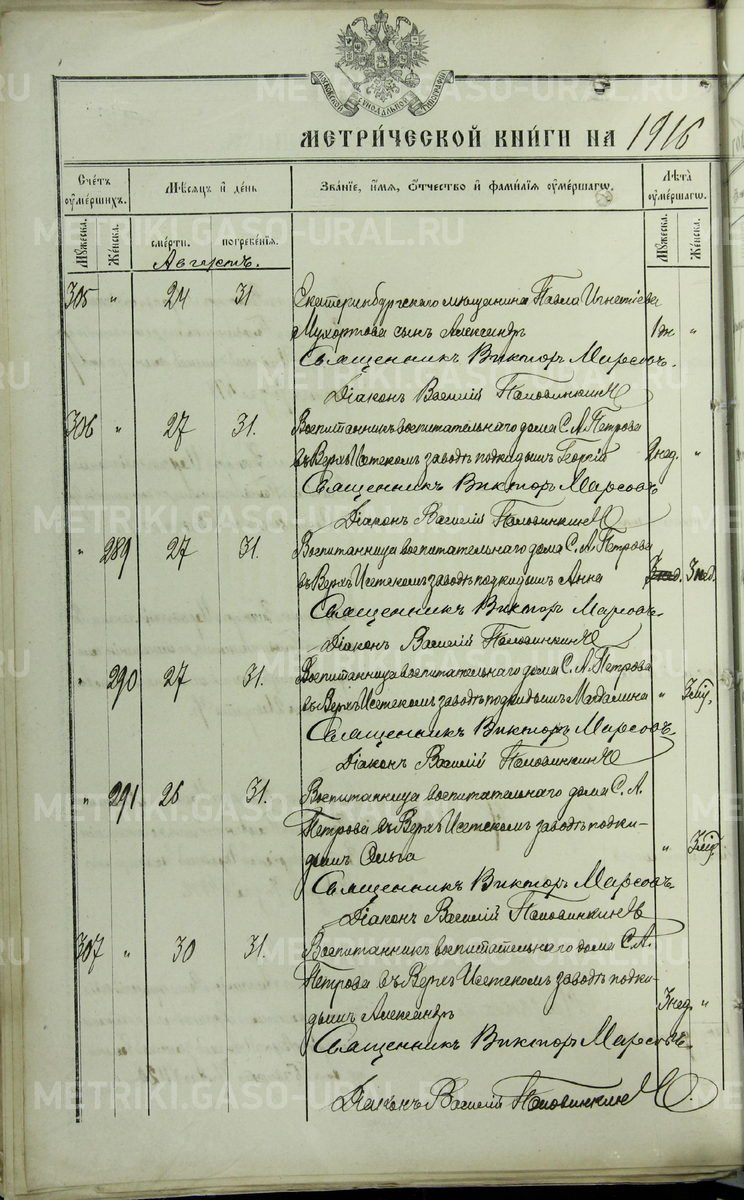 МОСКОВСКОЙ СУНОДАЛЬНОЙ ТИПОГРАФІИ
МЕТРИ́ЧЕСКОЙ КНИ́ГИ НА 1916
Сче́тъ оумершихъ.
Мѣсяцъ и день
Зва́нїе, и́мя, ѻ҆́тчество и фами́лїя оумершагѡ.
Лѣта̀ оумершагѡ.
Мꙋжеска. Же́нска. сме́рти. погребе́нїя. Мꙋжеска. Же́нска.
Августъ.
305 " 24 31 Екатеринбургскаго мѣщанина Павла Игнатіева
Мухортова сынъ Александръ 1 дн "
Священникъ Викторъ Марсовъ.
Діаконъ Василій
306 " 27 31. Воспитанникъ воспитательнаго дома С. А. Петрова
въ Верхъ Исетскомъ заводѣ подкидышъ Георгій 2 нед. "
Священникъ Викторъ Марсовъ
Діаконъ Василій
" 289 27 31. Воспитанница воспитательнаго дома С. А. Петрова
въ Верхъ Исетскомъ заводѣ подкидышъ Анна 3 нед. 3 нед.
Священникъ Викторъ Марсовъ
Діаконъ Василій
" 290 27 31. Воспитанница воспитательнаго дома С. А. Петрова
въ Верхъ Исетскомъ заводѣ подкидышъ Магдалина "
Священникъ Викторъ Марсовъ.
Діаконъ Василій
" 291 31. Воспитанница воспитательнаго дома С. А.
Петрова въ Верхъ Исетскомъ заводѣ подки-
дышъ Ольга "
Священникъ Викторъ Марсовъ
Діаконъ Василій
307 " 30 31. Воспитанникъ воспитательнаго дома С. А.
Петрова въ Верхъ Исетскомъ заводѣ подки-
дышъ Александръ 3 нед. "
Священникъ Викторъ Марсовъ.
Діаконъ Василій
METRIKI.GASO-URAL.RU